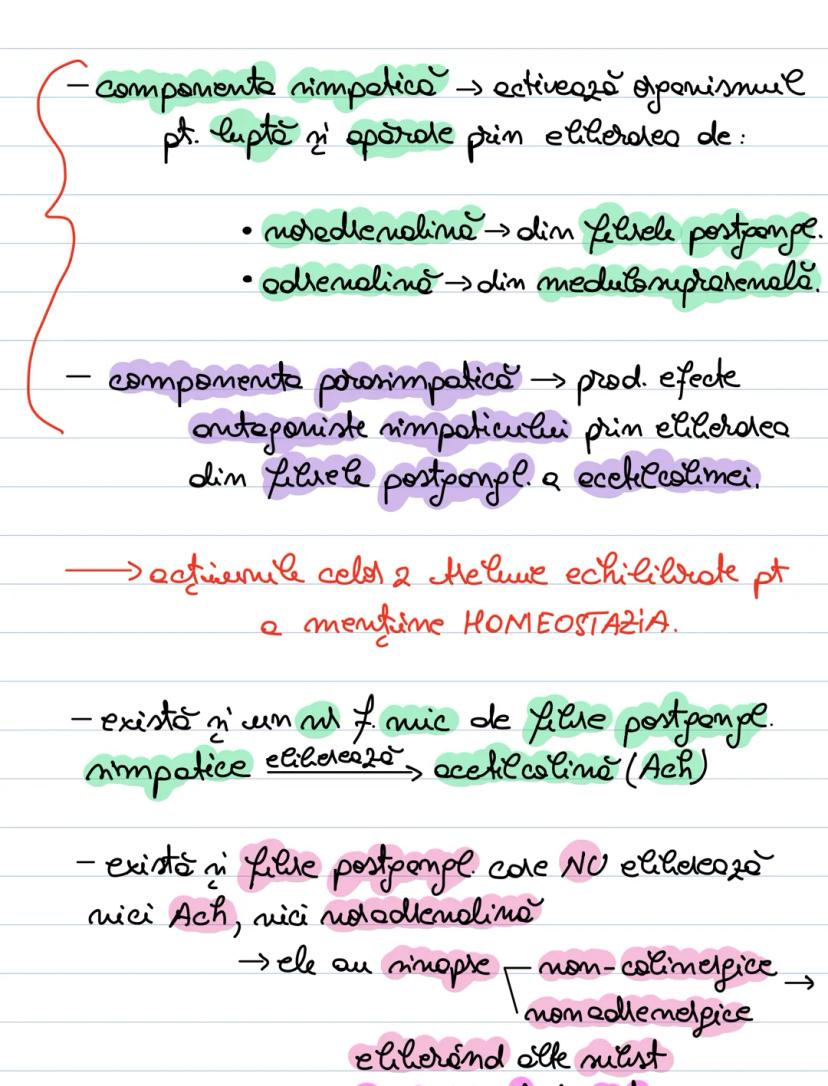 - componenta simpatică → activează organismul
pt. luptă și apărare prin eliberarea de:
• noradrenalină → din fibrele postgangl.
• adrenalină → din medulosuprarenală.
- componenta parasimpatică → prod. efecte
antagoniste simpaticului prin eliberarea
din fibrele postgangl. a acetilcolinei.
→ acțiunile celor 2 trebuie echilibrate pt
a menține HOMEOSTAZIA.
- există și un nr f. mic de fibre postgangl.
simpatice eliberează → acetilcolină (Ach)
- există și fibre postgangl. care NU eliberează
nici Ach, nici noradrenalină
→ ele au sinapse non-colinergice →
nonadrenergice
eliberând alte subst